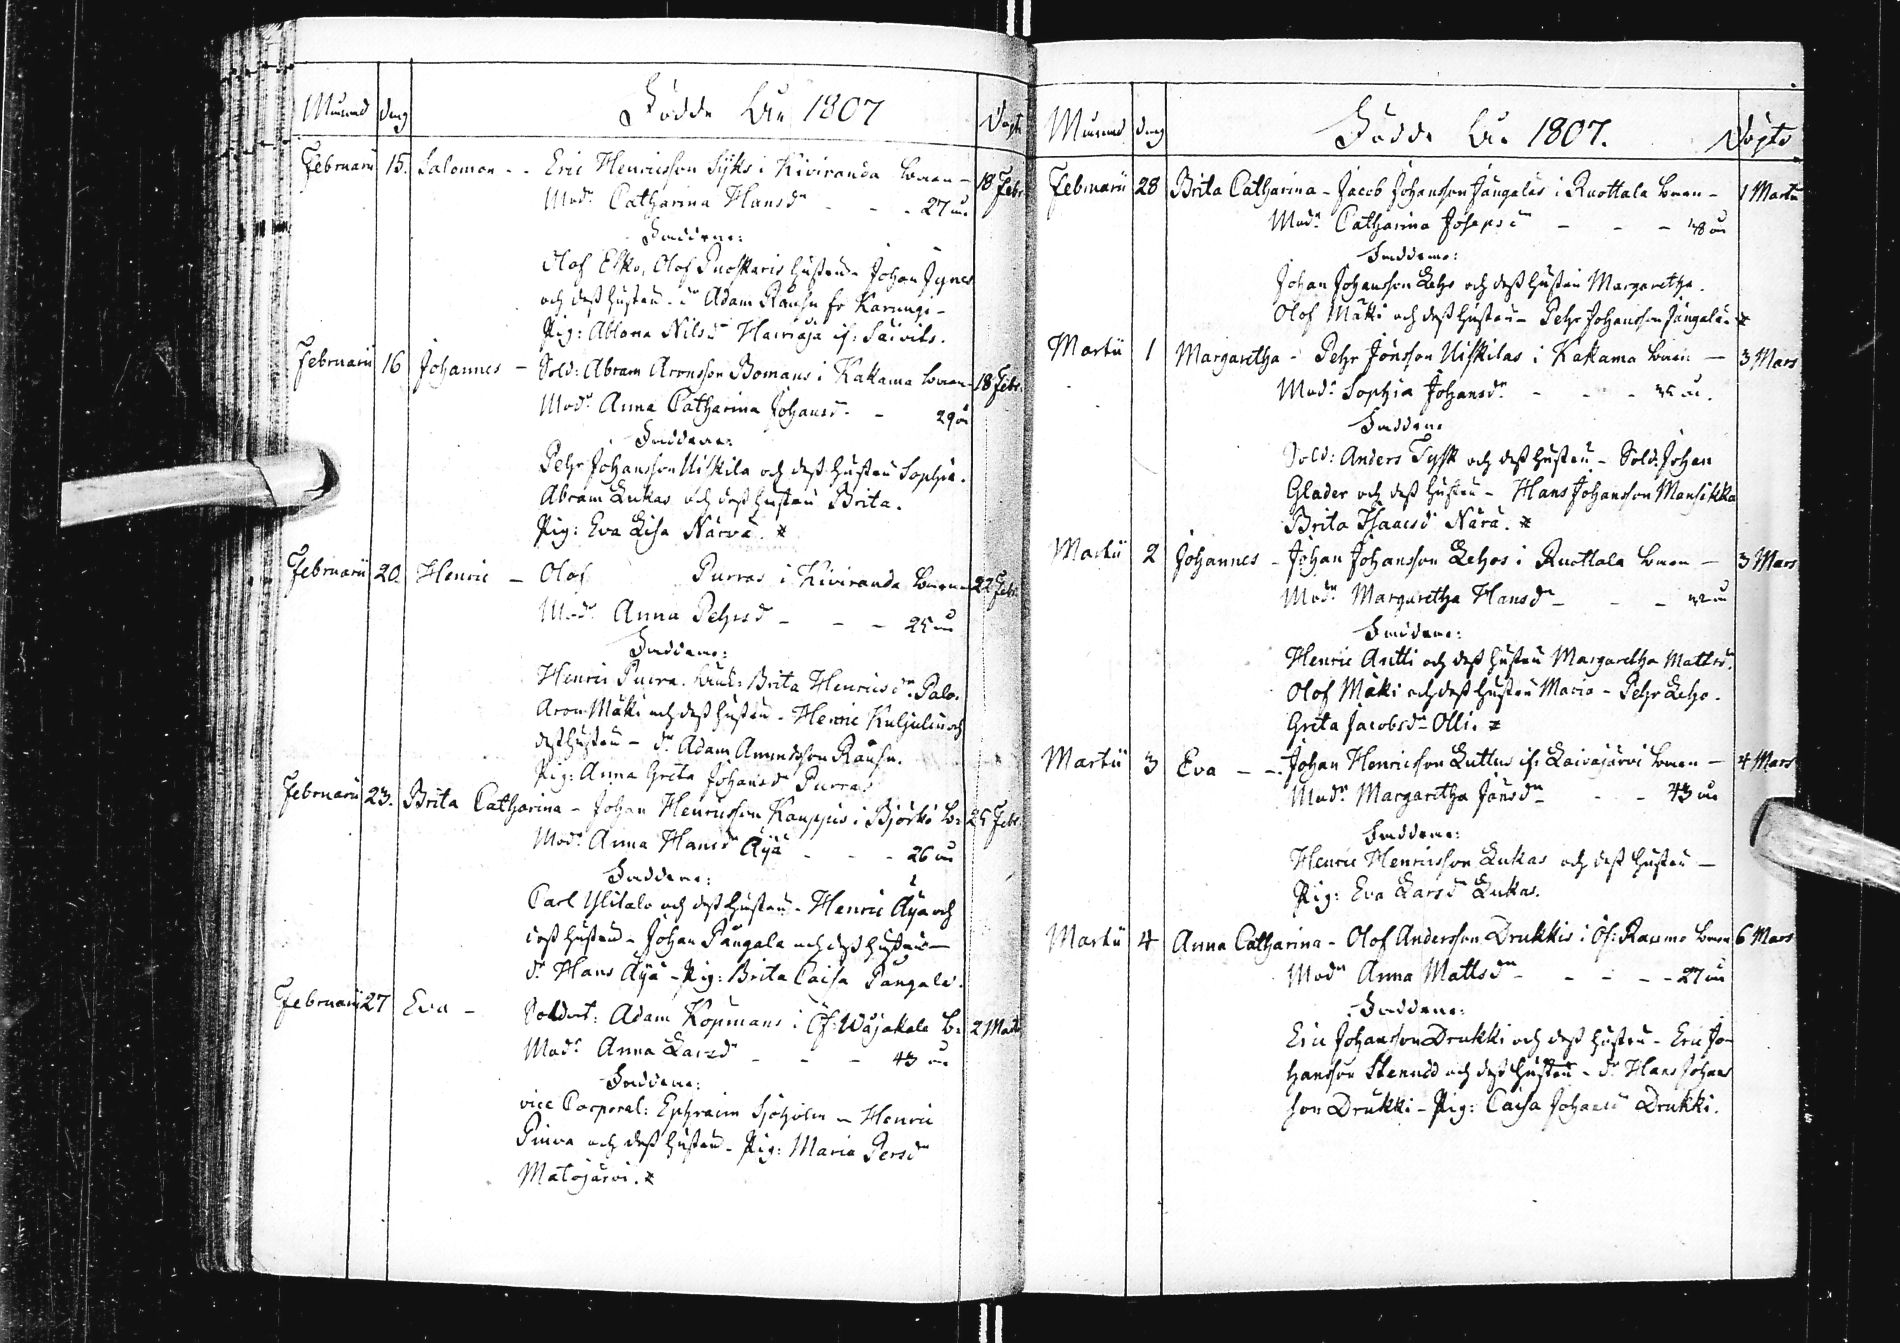 Månad dag Födde År 1807 Döpte
Februarii 15. Salomon - - Eric Henricsson Syks i Kiviranda barn - 18 Febr.
Modr Catharina Hansdr - - - 27 år
Faddrar:
Olof Esko, Olof Puoskaris hustru - Johan
och dess hustru. Dr. Adam Rauhu fr Karungi -
Pig: Nilsdr
Februarii 16 Johannes - Sold: Abram Aronsson Bomans i Kakama barn - 18 Febr.
Modr Anna Catharina Johansdr - 29 år
Faddrar:
Pehr Johansson Uiskila och dess hustru Sophia.
Abram Lukas och dess hustru Brita.
Pig: Eva Lisa Närvä.
Februarii 20. Henric - Olof Purras i Kiviranda barn 22 Febr.
Modr Anna Pehrsdr - - - 25 år
Faddrar:
Henric Purra. Brita Henricsdr Palo.
Aron Mäki och dess hustru - Henric och
dess hustru - dr. Adam Rauhu.
Pig: Anna Greta Johansdr Purra
Februarii 23. Brita Catharina - Johan Henricsson Kauppis i Björkö b: 25 Febr.
Modr Anna Hansdr Äyä - - - 26 år
Faddrar:
Carl Ylitalo och dess hustru - Henric Äyä och
dess hustru - Johan Pangala och dess hustru -
dr. Hans Äyä - Pig: Brita Caisa Pangala.
Februarii 27 Eva - Soldat: Adam Köpmans i Öf: Wojakala b: 2 Martii
Modr Anna Larsdr - - - 43 år
Faddrar:
vice Corporal: Ephraim Sjöholm - Henric
och dess hustru - Pig: Maria Persdr
Matojärvi.
Månad dag Födde År 1807. Döpte
Februarii 28 Brita Catharina - Jacob Johansson Jängales i Ruottala barn - 1 Martii
Modr Catharina Josepsdr - - - 48 år
Faddrar:
Johan Johansson Leho och dess hustru Margaretha.
Olof Mäki och dess hustru - Pehr Johansson
Martii 1 Margaretha - Pehr Jönsson Uiskilas i Kakama barn - 3 Mars
Modr Sophia Johansdr - - - år.
Faddrar
Sold: Anders Tysk och dess hustru - Sold: Johan
Glader och dess hustru - Hans Johansson Mansikka
Brita Isaacsdr Närä.
Martii 2 Johannes - Johan Johansson Lehos i Ruottala barn - 3 Mars
Modr Margaretha Hansdr - - - år
Faddrar:
Henric Antti och dess hustru Margaretha Mattsdr.
Olof Mäki och dess hustru Maria - Pehr Leho.
Greta Jacobsdr Olli.
Martii 3 Eva - - Johan Henricsson Luttus if: Laivajärvi barn - 4 Mars
Modr Margaretha Jönsdr - - - 43 år
Faddrar:
Henric Henricsson Lukas och dess hustru -
Pig: Eva Larsdr Lukas.
Martii 4 Anna Catharina - Olof Andersson Drukkis i Öf: Raumo barn 6 Mars
Modr Anna Mattsdr - - - - 27 år
Faddrar:
Eric Johansson Drukki och dess hustru - Eric Jo-
hansson och dess hustru - dr. Hans Johans
son Drukki - Pig: Caisa Johansdr Drukki.